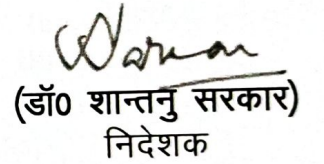 (डॉ0 शान्तनु सरकार)
निदेशक